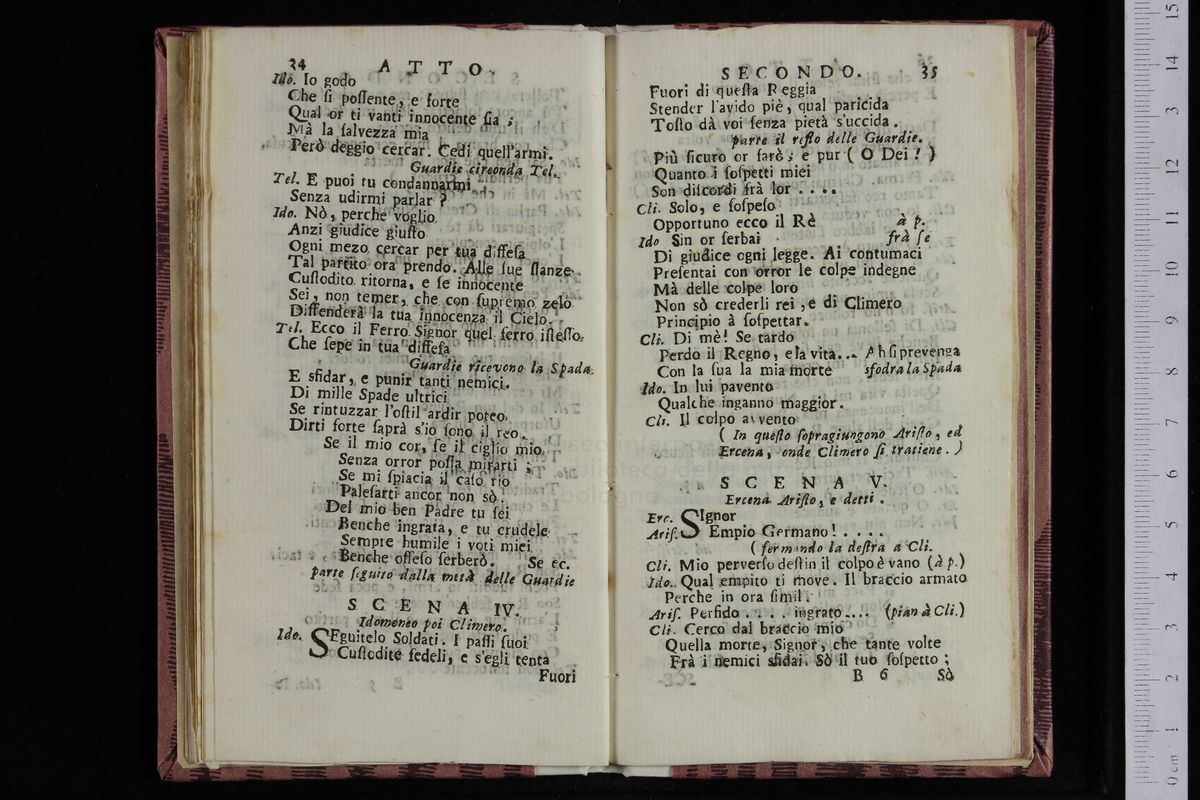 34 ATTO.
Ido. Io godo
Che ſi poſſente, e forte
Qual or ti vanti innocente ſia ;
Mà la ſalvezza mia
Però deggio cercar. Cedi quell'armi.
Guardie circonda Tel.
Tel. E puoi tu condannarmi
Senza udirmi parlar ?
Ido. Nò, perche voglio
Anzi giudice giuſto
Ogni mezo cercar per tua diffeſa
Tal partito ora prendo. Alle ſue ſtanze
Cuſtodito ritorna, e ſe innocente
Sei, non temer, che con ſupremo zelo
Diffenderà la tua innocenza il Cielo.
Tel. Ecco il Ferro Signor quel ferro iſteſſo
Che ſepe in tua diffeſa
Guardie ricevono la Spada.
E sfidar, e punir tanti nemici.
Di mille Spade ultrici
Se rintuzzar l'oſtil ardir poteo,
Dirti forte ſaprà s'io ſono il reo.
Se il mio cor, ſe il ciglio mio
Senza orror poſſa mirarti ;
Se mi ſpiacia il caſo rio
Paleſarti ancor non sò.
Del mio ben Padre tu ſei
Benche ingrata, e tu crudele
Sempre humile i voti miei
Benche offeſo ſerberò. Se ec.
parte ſeguito dalla metà delle Guardie
SCENA IV.
Idomeneo poi Climero.
Ido. SEguitelo Soldati. I paſſi ſuoi
Cuſtodite fedeli, e s'egli tenta
Fuori
SECONDO. 35
Fuori di queſta Reggia
Stender l'avido piè, qual paricida
Toſto dà voi ſenza pietà s'uccida.
parte il reſto delle Guardie.
Più ſicuro or ſarò ; e pur ( O Dei ! )
Quanto i ſoſpetti miei
Son diſcordi frà lor . . . .
Cli. Solo, e ſoſpeſo
Opportuno ecco il Rè à p.
Ido Sin or ſerbai frà ſe
Di giudice ogni legge. Ai contumaci
Preſentai con orror le colpe indegne
Mà delle colpe loro
Non sò crederli rei , e di Climero
Principio à ſoſpettar.
Cli. Di mè! Se tardo
Perdo il Regno, e la vita... Ah ſi prevenga
Con la ſua la mia morte sfodra la Spada
Ido. In lui pavento
Qualche inganno maggior.
Cli. Il colpo avvento
( In queſto ſopragiungono Ariſto, ed
Ercena, onde Climero ſi tratiene. )
SCENA V.
Ercena Ariſto, e detti.
Erc. SIgnor
Ariſ. Empio Germano ! . . . .
( fermando la deſtra a Cli.
Cli. Mio perverſo deſtin il colpo è vano (à p.)
Ido. Qual empito ti move. Il braccio armato
Perche in ora ſimil.
Ariſ. Perfido . . . . ingrato.... (pian à Cli.)
Cli. Cerco dal braccio mio
Quella morte, Signor, che tante volte
Frà i nemici sfidai. Sò il tuo ſoſpetto ;
B 6 Sò